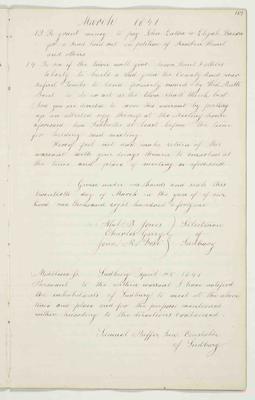 March 1841
13 To grant money to pay John Eaton & Elijah
for a road laid out on petition of
and others
14 To see if the town will give
liberty to build a shed upon the County land near
Tombs to land formerly owned by
or to act as the town shall think best
And you are directed to serve this warrant by posting
up an attested copy thereof at the Meeting house
aforesaid two Sabbaths at least before the time
for holding said meeting
Hereof fail not and make return of this
warrant with your doings thereon to ourselves at
the time and place of meeting as aforesaid.
Given under our hands and seals this
twentieth day of March in the year of our
Lord one thousand eight hundred & forty one
Abel B. Jones } Selectmen
Charles } of
} Sudbury
Middlesex ss Sudbury April 1841
Pursuant to the within warrant I have notified
the inhabitants of Sudbury to meet at the above
time and place and for the purposes mentioned
within according to the directions contained
Samuel Puffer Constable
of Sudbury